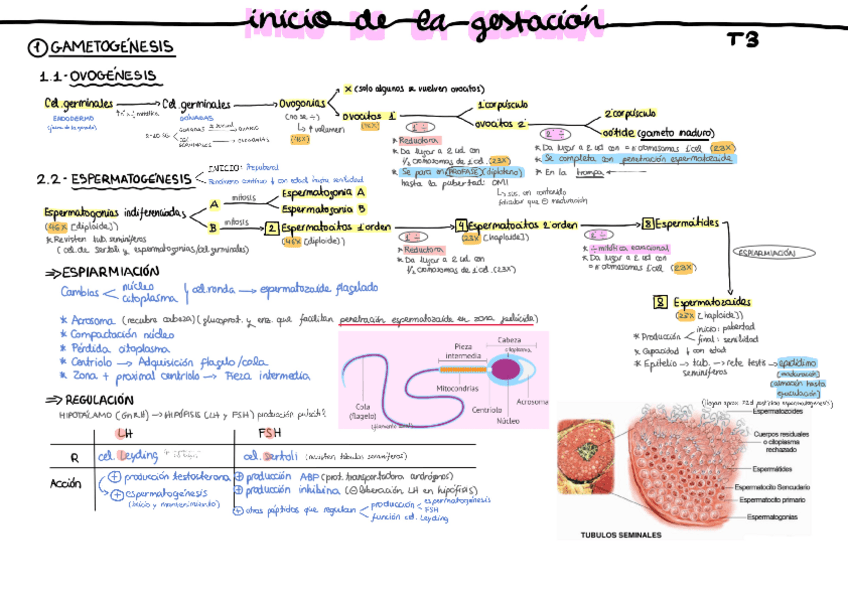 inicio de la gestación
T3
① GAMETOGÉNESIS
1.1- OVOGÉNESIS
Cel. germinales → Cel. germinales → Ovogonias
ENDODERMO
GÓNADAS
(no se ÷)
↳ ↑ volumen
(46X)
X (solo algunos se vuelven ovocitos)
ovocitos 1º
(46X)
1ª ÷
* Reductora
* Da lugar a 2 cel con
1/2 cromosomas de 1 cel. (23X)
* Se para en PROFASE (diploteno)
hasta la pubertad: OMI
↳ sis. en contenido
folicular que ⊖ maduración
1 corpúsculo
ovocitos 2º
2ª ÷
2 corpúsculo
oótide (gameto maduro)
* Da lugar a 2 cel con = nº cromosomas 1 cel (23X)
* Se completa con penetración espermatozoide
* En la trompa
2.2- ESPERMATOGÉNESIS
INICIO: Prepuberal
Fenómeno continuo ↓ con edad hasta senilidad
Espermatogonias indiferenciadas
(46X [diploide])
* Revisten tub. seminíferos
(cel. de sertoli y espermatogonias/cel germinales)
A mitosis
Espermatogonia A
Espermatogonia B
B mitosis
2 Espermatocitos 1º orden
(46X [diploide])
1ª ÷
* Reductora
* Da lugar a 2 cel con
1/2 cromosomas de 1 cel. (23X)
4 Espermatocitos 2º orden
(23X [haploide])
2ª ÷
* ÷ mitótica ecuacional
* Da lugar a 2 cel con
= nº cromosomas 1 cel (23X)
8 Espermátides
ESPIARMIACIÓN
8 Espermatozoides
(23X [haploide])
* Producción
inicio: pubertad
final: senilidad
* Capacidad ↓ con edad
* Epitelio → tub. seminíferos → rete testis → epidídimo
[maduración]
[almacén hasta
eyaculación]
⇒ ESPIARMIACIÓN
Cambios
núcleo
citoplasma
cel. ronda → espermatozoide flagelado
* Acrosoma (recubre cabeza) (glucoprot. y enz. que facilitan penetración espermatozoide en zona pelúcida)
* Compactación núcleo
* Pérdida citoplasma
* Centriolo → Adquisición flagelo/cola
* Zona + proximal centriolo → Pieza intermedia
Cabeza
Pieza
intermedia
Mitocondrias
Acrosoma
Centriolo
Núcleo
Cola
(flagelo)
⇒ REGULACIÓN
HIPOTÁLAMO (GnRH) → HIPÓFISIS (LH y FSH) producción pulsátil
LH
FSH
R
cel. Leyding
cel. Sertoli (revisten túbulos seminíferos)
Acción
⊕ producción testosterona
⊕ espermatogénesis
(inicio y mantenimiento)
⊕ producción ABP (prot. transportadora andrógenos)
⊕ producción inhibina (⊖ liberación LH en hipófisis)
⊕ otros péptidos que regulan
producción
espermatogénesis
FSH
función cel. Leyding
Espermatozoides
Cuerpos residuales
o citoplasma
rechazado
Espermátides
Espermatocito Sencudario
Espermatocito primario
Espermatogonias
TUBULOS SEMINALES